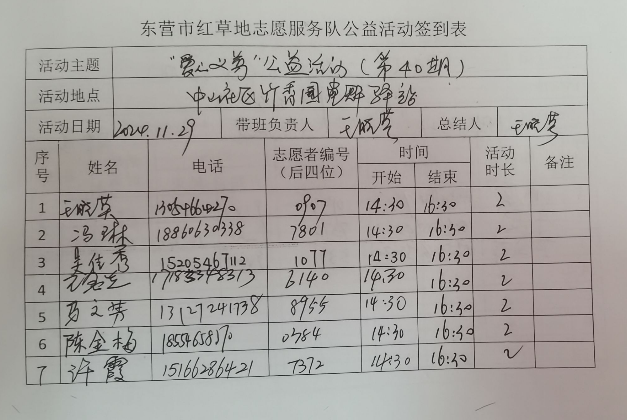 东营市红草地志愿服务队公益活动签到表
活动主题 "爱心义剪"公益活动(第40期)
活动地点 中山社区竹香园党群驿站
活动日期 2024.11.29 带班负责人 王晓英 总结人 王晓英
序号 姓名 电话 志愿者编号(后四位) 时间 开始 结束 活动时长 备注
1 王晓英 13054664270 0907 14:30 16:30 2
2 冯琳 18860630338 7801 14:30 16:30 2
3 吴佳秀 15205467112 1077 14:30 16:30 2
4 6140 14:30 16:30 2
5 马文芳 13127241738 8955 14:30 16:30 2
6 陈金梅 0584 14:30 16:30 2
7 许霞 15166286421 7372 14:30 16:30 2